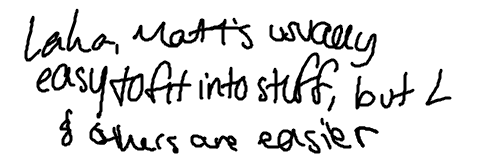 Laha, Matt's usually
easy to fit into stuff, but L
& others are easier